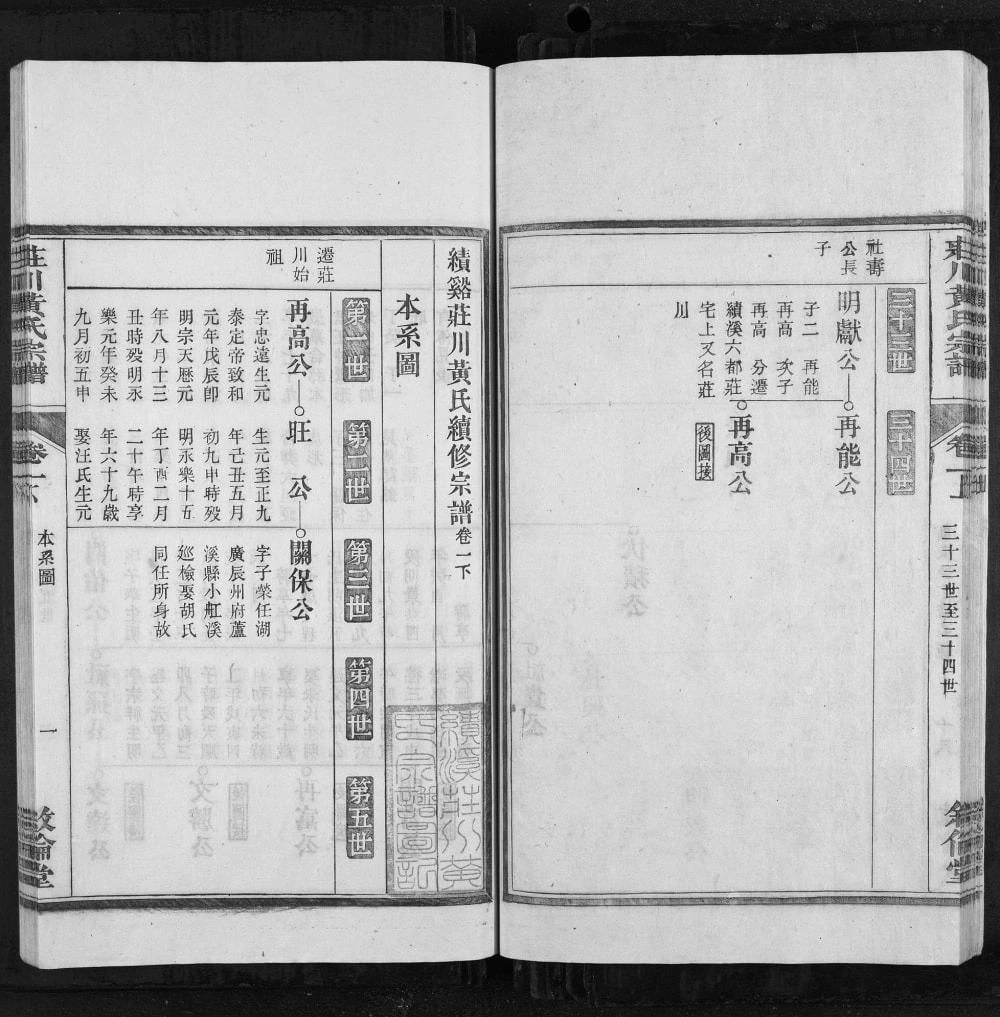 莊川黃氏宗譜
卷一上
三十三世至三十四世
敘倫堂
三十三世
三十四世
社壽
公長
子
明獻公
再能公
子二　再能
再高　次子
再高　分遷
績溪六都莊
宅上又名莊
川
再高公
後圖接
績谿莊川黃氏續修宗譜卷一下
績溪莊川黃
氏宗譜圖記
本系圖
第一世
第二世
第三世
第四世
第五世
遷莊
川始
祖
再高公
字忠遠生元
泰定帝致和
元年戊辰卽
明宗天厯元
年八月十三
丑時歿明永
樂元年癸未
九月初五申
旺公
生元至正九
年己丑五月
初九申時歿
明永樂十五
年丁酉二月
二十午時享
年六十九歲
娶汪氏生元
關保公
字子榮任湖
廣辰州府蘆
溪縣小舡溪
廵檢娶胡氏
同任所身故
莊川黃氏宗譜
卷一下
本系圖
一
敘倫堂